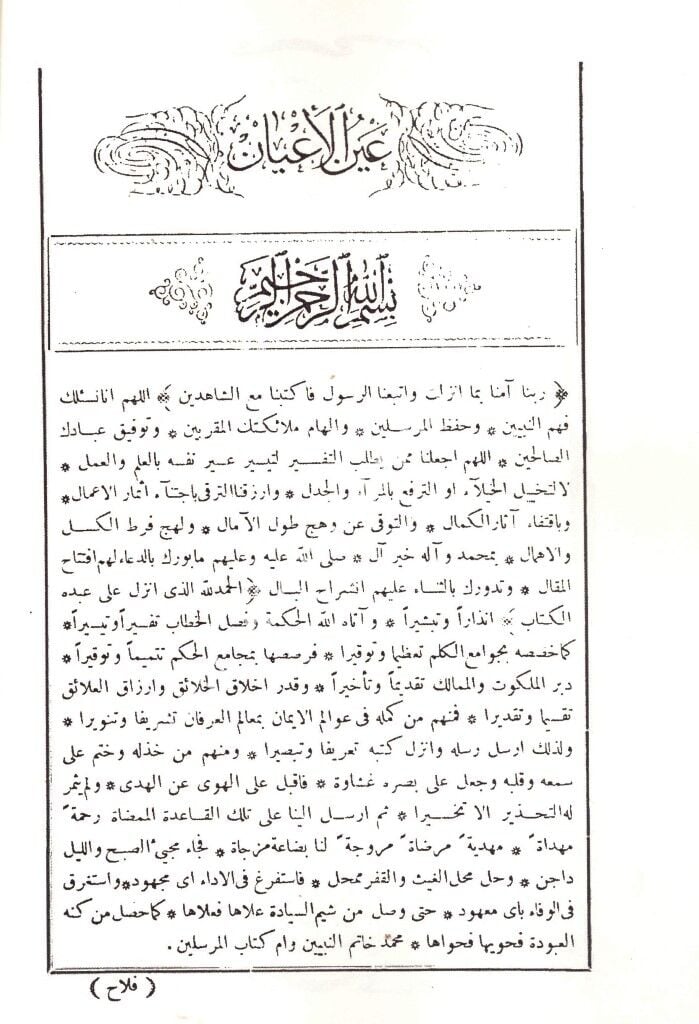 عَيْنُ الْأَعْيَانِ
بسم الله الرحمن الرحيم
﴿ ربنا آمنا بما انزلت واتبعنا الرسول فاكتبنا مع الشاهدين ﴾ اللهم انانسئلك
فهم النبيين * وحفظ المرسلين * والهام ملائكتك المقربين * وتوفيق عبادك
الصالحين * اللهم اجعلنا ممن يطلب التفسير لتيسير عسير نفسه بالعلم والعمل *
لالتخييل الخيلآء او الترفع بالمرآء والجدل * وارزقنا الترقى باجتنآء أثمار الاعمال *
وباقتفاء آثار الكمال * والتوقى عن وهج طول الآمال * ولهج فرط الكسل
والاهمال * بمحمد وآله خير آل * صلى الله عليه وعليهم مابورك بالدعاء لهم افتتاح
المقال * وتدورك بالثناء عليهم انشراح البال ﴿ الحمدلله الذى انزل على عبده
الكتاب ﴾ انذاراً وتبشيراً * وآتاه الله الحكمة وفصل الخطاب تفسيراً وتيسيراً *
كما خصصه بجوامع الكلم تعظيما وتوقيرا * فرصصها بمجامع الحكم تتميماً وتوقيراً *
دبر الملكوت والممالك تقديماً وتأخيراً * وقدر اخلاق الخلائق وارزاق العلائق
تقسيما وتقديرا * فمنهم من كمله فى عوالم الايمان بمعالم العرفان تشريفا وتنويرا *
ولذلك ارسل رسله وانزل كتبه تعريفا وتبصيرا * ومنهم من خذله وختم على
سمعه وقلبه وجعل على بصره غشاوة * فاقبل على الهوى عن الهدى * ولم يثمر
له التحذير الا تخسيرا * ثم ارسل الينا على تلك القاعدة الممضاة رحمةً
مهداةً * مهديةً مرضاةً مروجةً لنا بضاعة مزجاة * فجاء مجيئ الصبح والليل
داجن * وحل محل الغيث والقفر ممحل * فاستفرغ فى الاداء اى مجهود * واستغرق
فى الوفاء باى معهود * حتى وصل من شيم السيادة علاها فعلاها * كما حصل من كنه
العبودة فحويها فحواها * محمد خاتم النبيين وام كتاب المرسلين .
( فلاح )